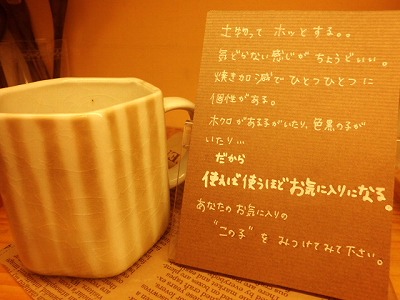 土物って ホッとする。。
気どらない感じが ちょうどいい。
焼き加減で ひとつひとつに
個性がある。
ホクロがある子がいたり、色黒の子が
いたり…
だから
使えば使うほどお気に入りになる。
あなたのお気に入りの
"この子" を みつけてみて下さい。